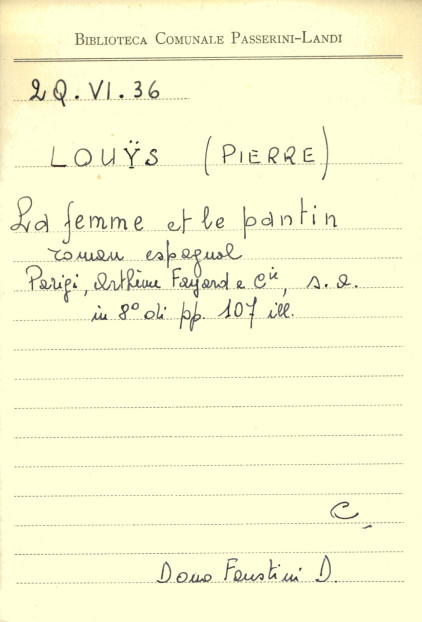 BIBLIOTECA COMUNALE PASSERINI-LANDI
2Q.VI.36
LOUŸS (PIERRE)
La femme et le pantin
roman espagnol
Parigi, Arthème Fayard e Cie, s.a.
in 8° di pp. 107 ill.
C
Dono Faustini D.